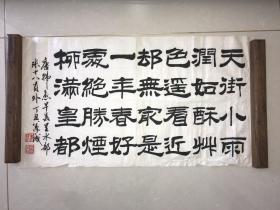 天街小雨
潤如酥艸
色遥看近
却無冣是
一年春好
處絕勝煙
柳滿皇都
唐韓愈早春呈水部
張十八員外丁丑